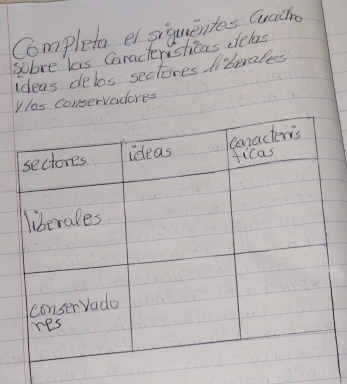 Completa el siguientes Cuadro
sobre las Características delas
ideas de los sectores liberales
y las conservadores
sectores ideas caracterís
ticas
liberales
conservado
res